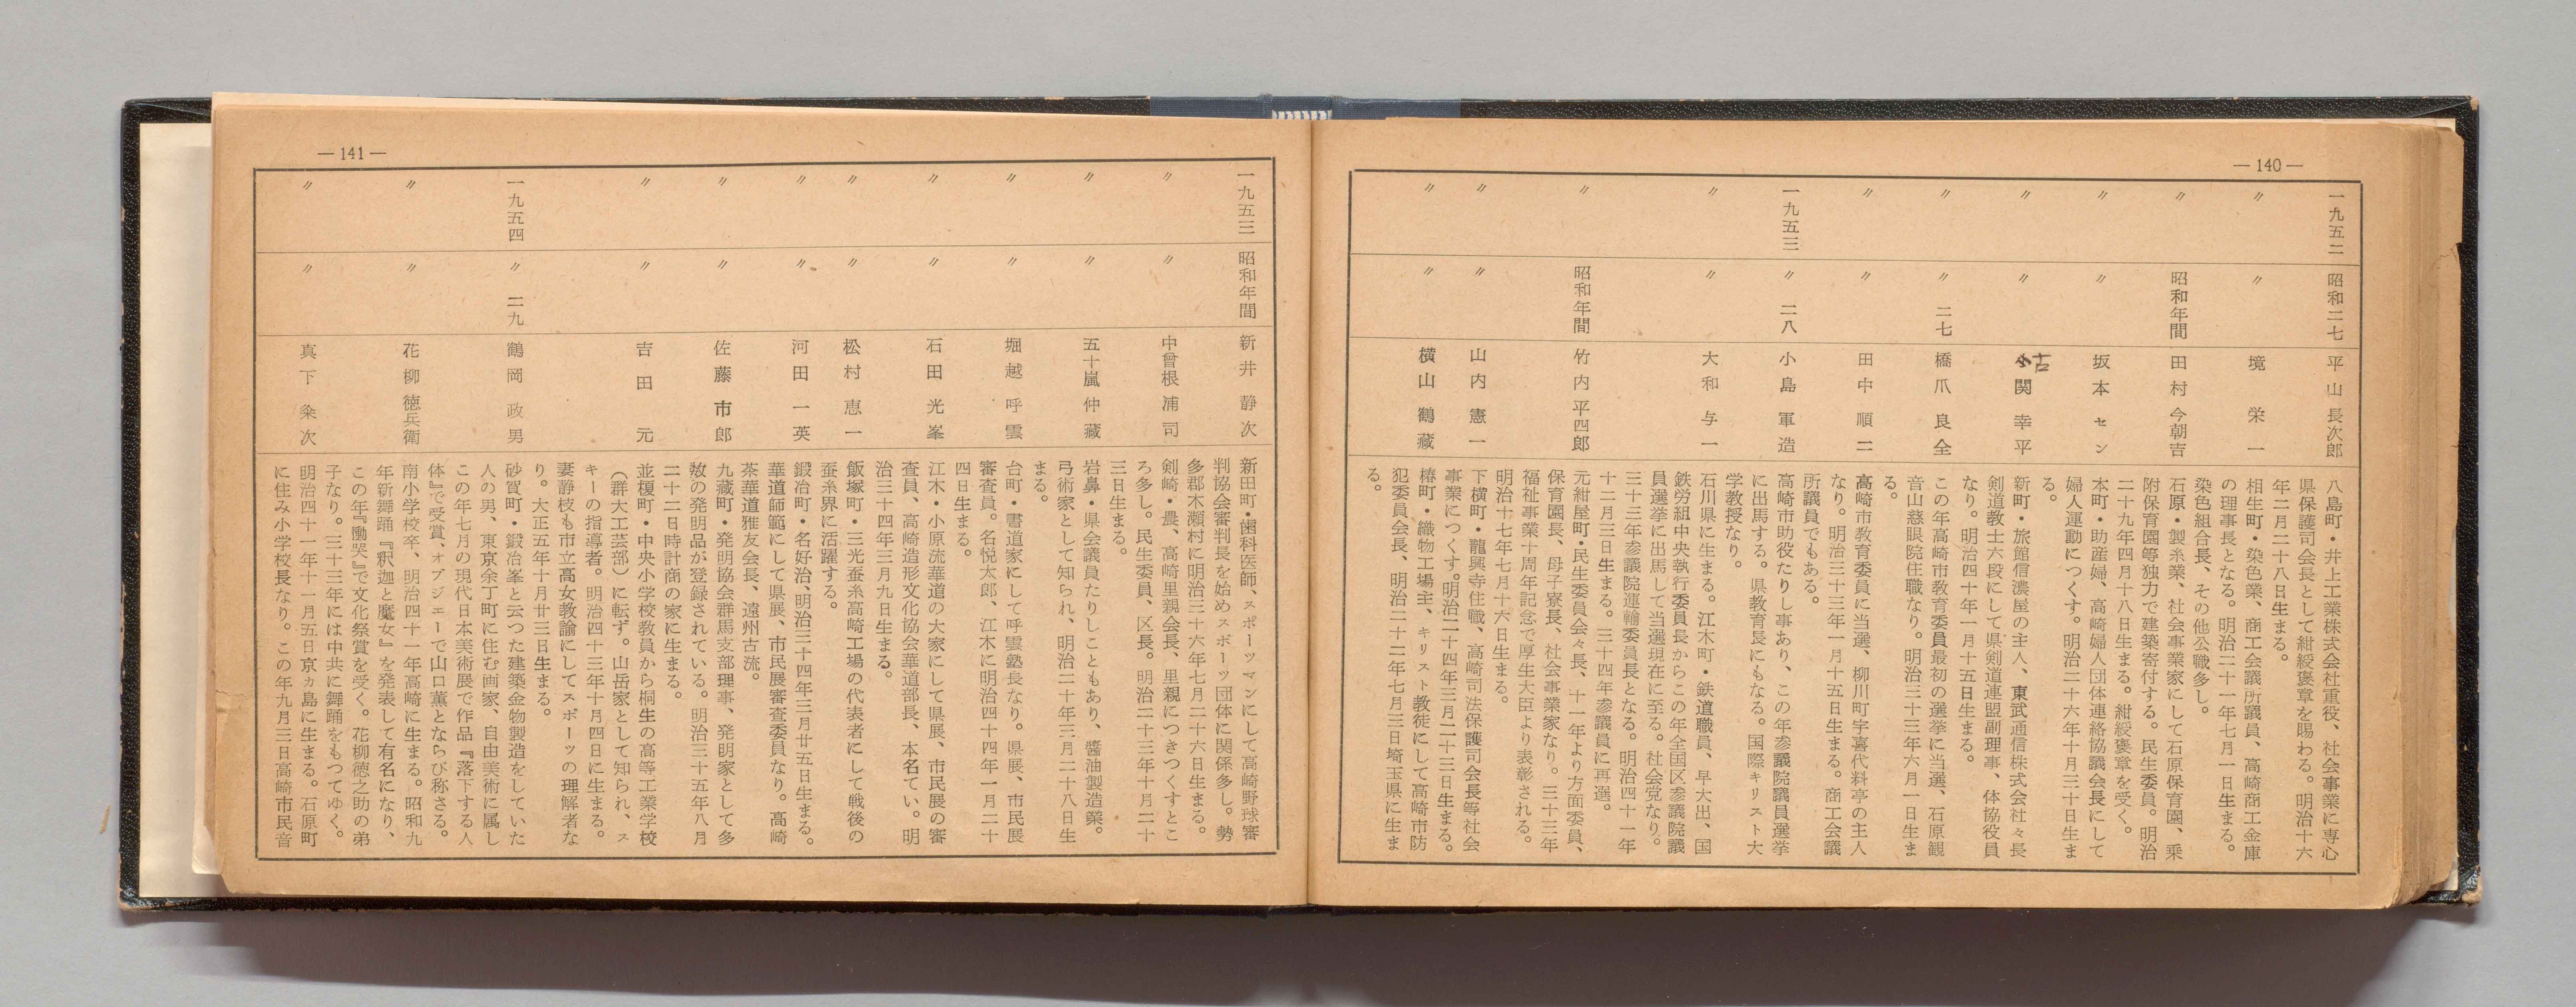 — 140 —
一九五二 昭和二七 平山長次郎 八島町・井上工業株式会社重役、社会事業に専心
県保護司会長として紺綬褒章を賜わる。明治十六
年二月二十八日生まる。
〃 〃 境栄一 相生町・染色業、商工会議所議員、高崎商工金庫
の理事長となる。明治二十一年七月一日生まる。
染色組合長、その他公職多し。
昭和年間 田村今朝吉 石原・製糸業、社会事業家にして石原保育園、乗
附保育園等独力で建築寄付する。民生委員。明治
二十九年四月十八日生まる。紺綬褒章を受く。
〃 坂本セン 本町・助産婦、高崎婦人団体連絡協議会長にして
婦人運動につくす。明治二十六年十月三十日生ま
る。
〃 〃 小関幸平 古 新町・旅館信濃屋の主人、東武通信株式会社々長
剣道教士六段にして県剣道連盟副理事、体協役員
なり。明治四十年一月十五日生まる。
〃 二七 橋爪良全 この年高崎市教育委員最初の選挙に当選、石原観
音山慈眼院住職なり。明治三十三年六月一日生ま
る。
〃 〃 田中順二 高崎市教育委員に当選、柳川町宇喜代料亭の主人
なり。明治三十三年一月十五日生まる。商工会議
所議員でもある。
一九五三 〃 二八 小島軍造 高崎市助役たりし事あり、この年参議院議員選挙
に出馬する。県教育長にもなる。国際キリスト大
学教授なり。
〃 〃 大和与一 石川県に生まる。江木町・鉄道職員、早大出、国
鉄労組中央執行委員長からこの年全国区参議院議
員選挙に出馬して当選現在に至る。社会党なり。
三十三年参議院運輸委員長となる。明治四十一年
十二月三日生まる。三十四年参議員に再選。
〃 昭和年間 竹内平四郎 元紺屋町・民生委員会々長、十一年より方面委員、
保育園長、母子寮長、社会事業家なり。三十三年
福祉事業十周年記念で厚生大臣より表彰される。
明治十七年七月十六日生まる。
〃 〃 山内憲一 下横町・龍興寺住職、高崎司法保護司会長等社会
事業につくす。明治二十四年三月二十三日生まる。
〃 〃 横山鶴蔵 椿町・織物工場主、キリスト教徒にして高崎市防
犯委員会長、明治二十二年七月三日埼玉県に生ま
る。
— 141 —
一九五三 昭和年間 新井静次 新田町・歯科医師、スポーツマンにして高崎野球審
判協会審判長を始めスポーツ団体に関係多し。勢
多郡木瀬村に明治三十六年七月二十六日生まる。
〃 〃 中曾根浦司 剣崎・農、高崎里親会長、里親につきつくすとこ
ろ多し。民生委員、区長。明治二十三年十月二十
三日生まる。
〃 〃 五十嵐仲蔵 岩鼻・県会議員たりしこともあり、醬油製造業。
弓術家として知られ、明治二十年三月二十八日生
まる。
〃 〃 堀越呼雲 台町・書道家にして呼雲塾長なり。県展、市民展
審査員。名悦太郎、江木に明治四十四年一月二十
四日生まる。
〃 〃 石田光峯 江木・小原流華道の大家にして県展、市民展の審
査員、高崎造形文化協会華道部長、本名てい。明
治三十四年三月九日生まる。
〃 〃 松村恵一 飯塚町・三光蚕糸高崎工場の代表者にして戦後の
蚕糸界に活躍する。
〃 〃 河田一英 鍛冶町・名好治、明治三十四年三月廿五日生まる。
華道師範にして県展、市民展審査委員なり。高崎
茶華道雅友会長、遠州古流。
〃 〃 佐藤市郎 九藏町・発明協会群馬支部理事、発明家として多
数の発明品が登録されている。明治三十五年八月
二十二日時計商の家に生まる。
〃 〃 吉田元 並榎町・中央小学校教員から桐生の高等工業学校
（群大工芸部）に転ず。山岳家として知られ、ス
キーの指導者。明治四十三年十月四日に生まる。
妻静枝も市立高女教諭にしてスポーツの理解者な
り。大正五年十月廿三日生まる。
一九五四 〃 二九 鶴岡政男 砂賀町・鍛冶峯と云つた建築金物製造をしていた
人の男、東京余丁町に住む画家、自由美術に属し
この年七月の現代日本美術展で作品『落下する人
体』で受賞、オブジエーで山口薫とならび称さる。
〃 〃 花柳徳兵衛 南小学校卒、明治四十一年高崎に生まる。昭和九
年新舞踊『釈迦と魔女』を発表して有名になり、
この年『慟哭』で文化祭賞を受く。花柳徳之助の弟
子なり。三十三年には中共に舞踊をもつてゆく。
〃 〃 真下粂次 明治四十一年十一月五日京ヵ島に生まる。石原町
に住み小学校長なり。この年九月三日高崎市民音